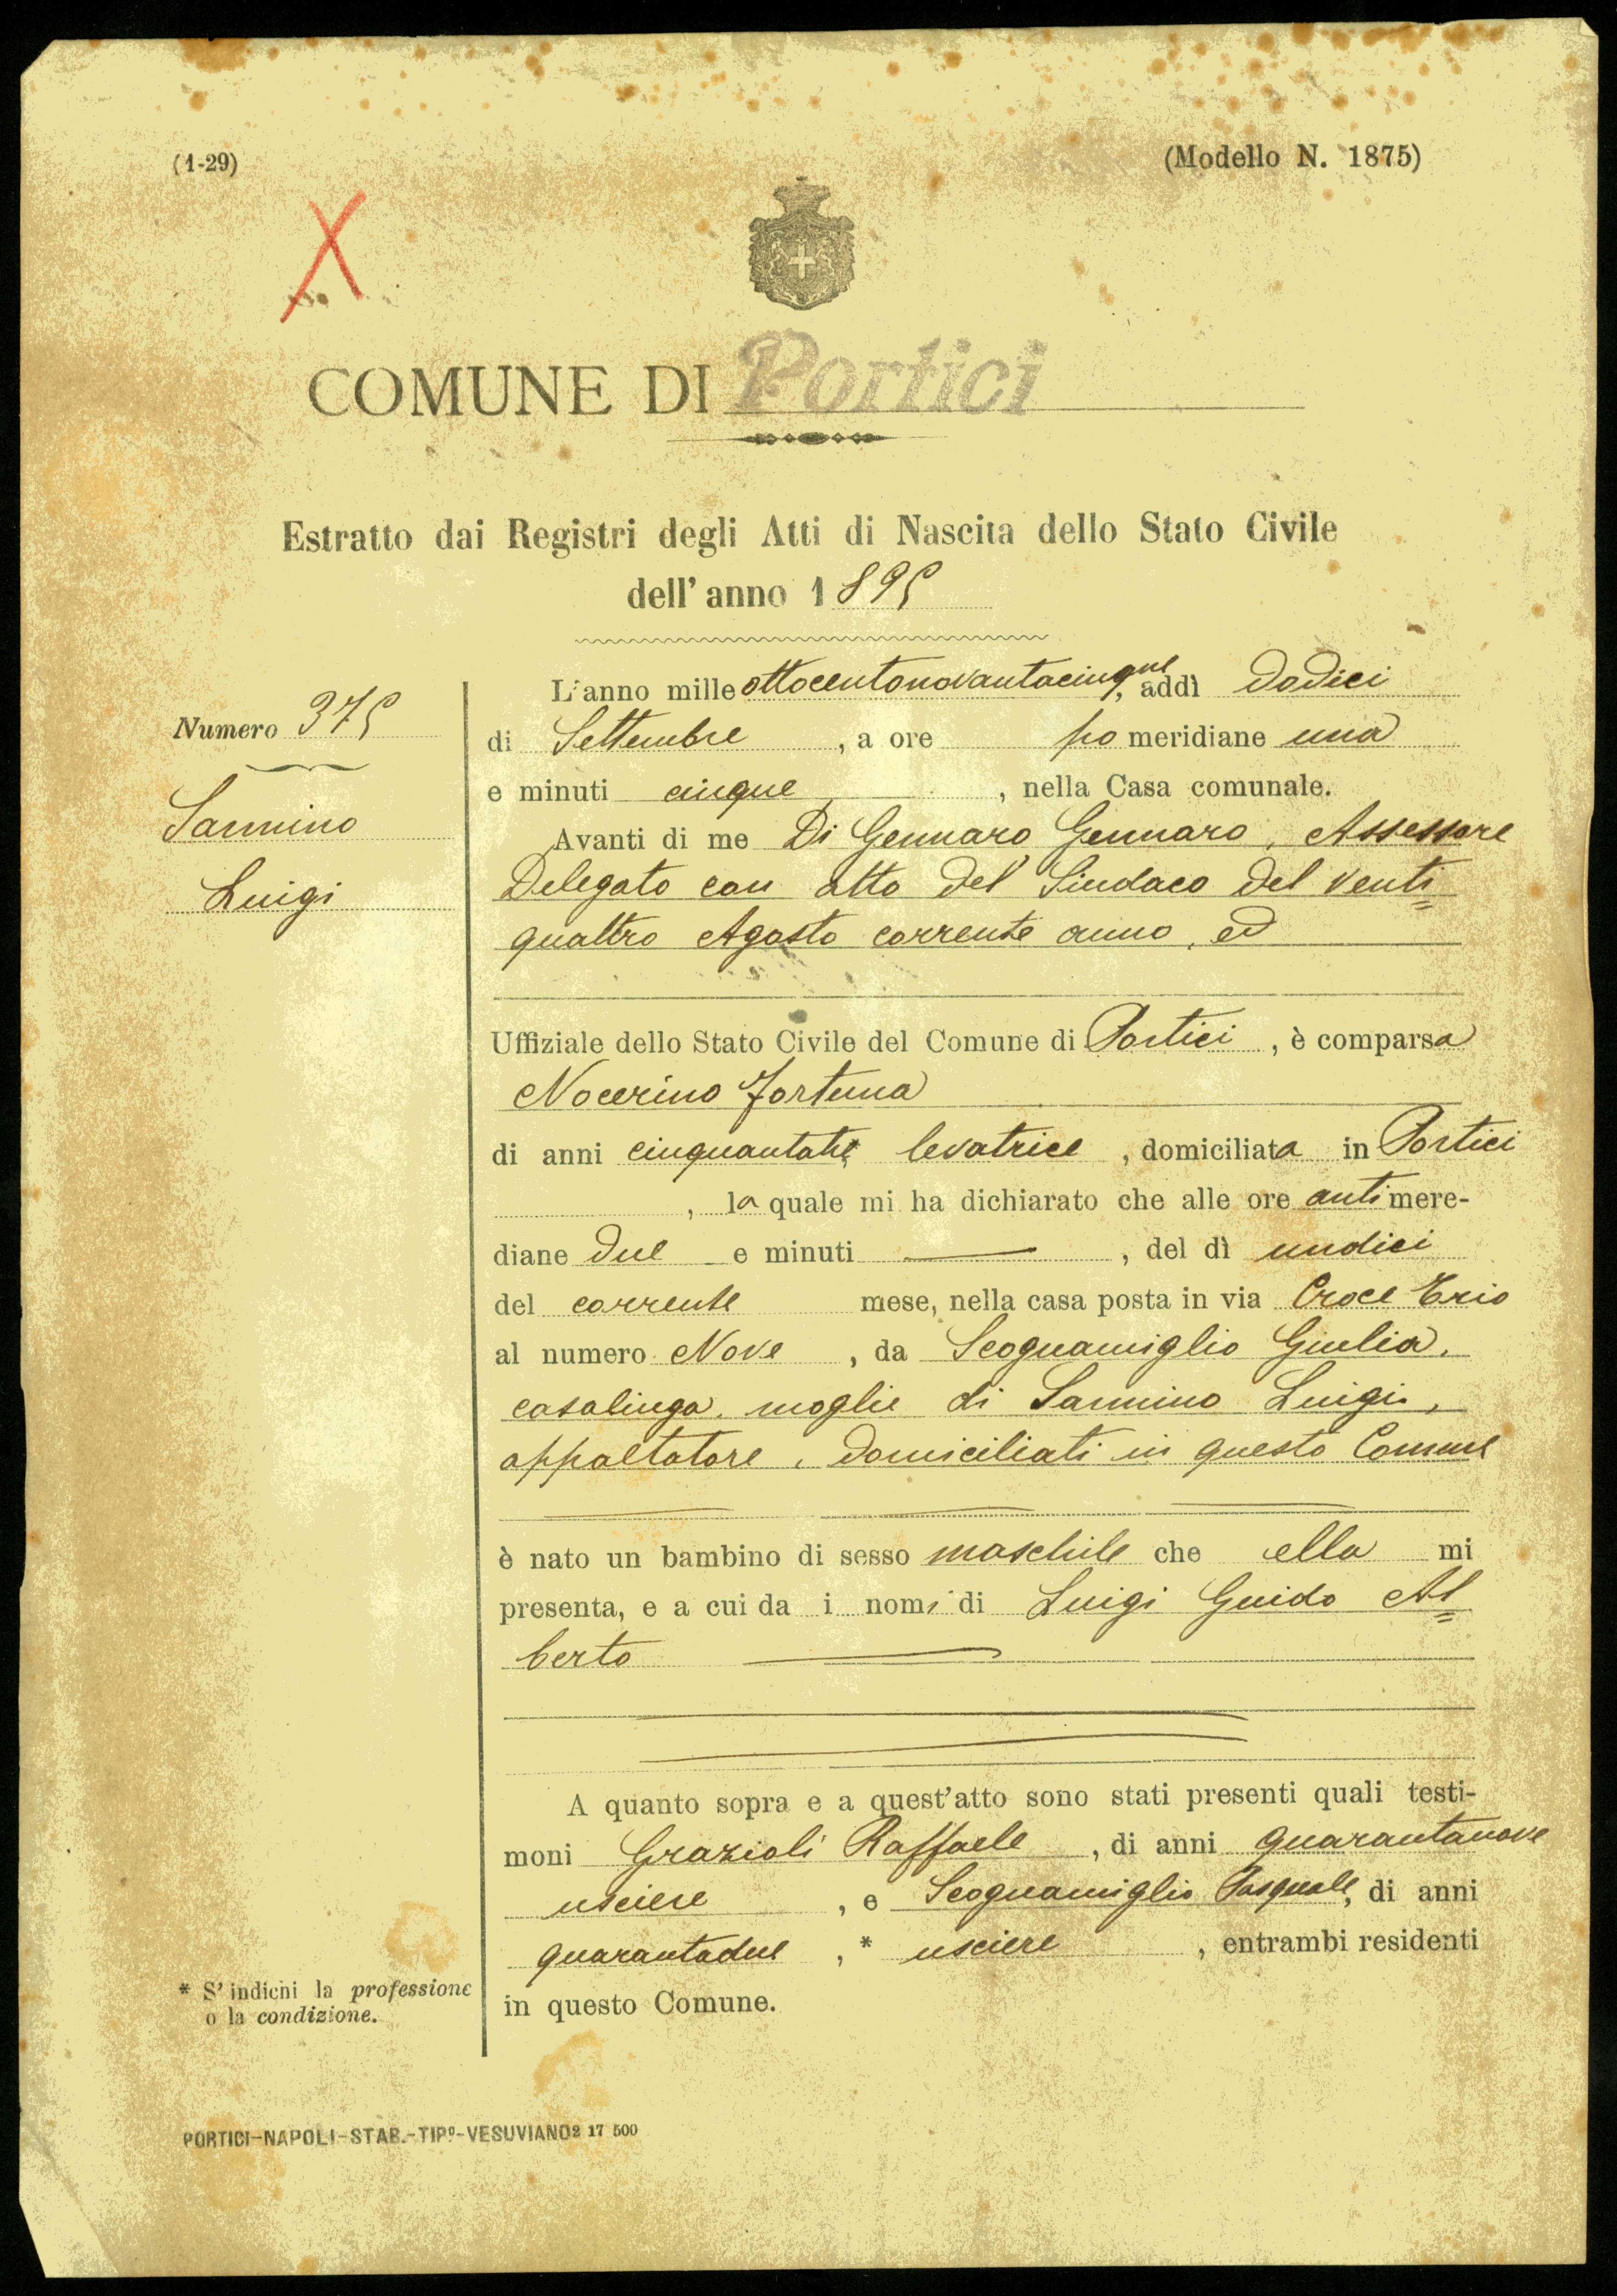 (1-29)
(Modello N. 1875)
COMUNE DI Portici
Estratto dai Registri degli Atti di Nascita dello Stato Civile
dell'anno 1895
Numero 375
Sannino
Luigi
L'anno mille ottocentonovantacinque, addì dodici
di Settembre, a ore po meridiane una
e minuti cinque, nella Casa comunale.
Avanti di me Di Gennaro Gennaro, Assessore
Delegato con atto del Sindaco del venti=
quattro Agosto corrente anno, ed
Uffiziale dello Stato Civile del Comune di Portici, è comparsa
Nocerino Fortuna
di anni cinquantatre levatrice, domiciliata in Portici
, la quale mi ha dichiarato che alle ore antimere-
diane due e minuti —, del dì undici
del corrente mese, nella casa posta in via Croce
al numero Nove, da Scognamiglio Giulia,
casalinga, moglie di Sannino Luigi,
appaltatore, domiciliati in questo Comune
è nato un bambino di sesso maschile che ella mi
presenta, e a cui da i nomi di Luigi Guido Al=
berto
A quanto sopra e a quest'atto sono stati presenti quali testi-
moni Grazioli Raffaele, di anni quarantanove
usciere, e Scognamiglio Pasquale, di anni
quarantadue, * usciere, entrambi residenti
in questo Comune.
* S'indichi la professione
o la condizione.
PORTICI-NAPOLI-STAB.-TIPº-VESUVIANO 2 17 500